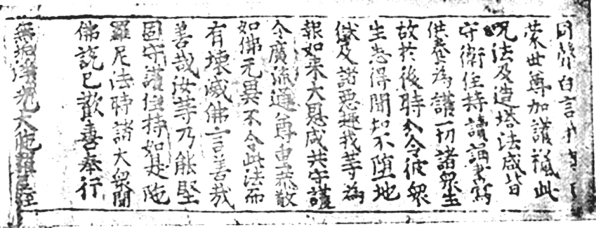 同聲白言我等
蒙世尊加護授此
呪法及造塔法咸皆
守衛住持讀誦書寫
供養為護一切諸衆生
故於後時分令彼衆
生悉得聞知不墮地
獄及諸惡趣我等為
報如來大恩咸共守護
令廣流通尊重恭敬
如佛无異不令此法而
有壞滅佛言善哉
善哉汝等乃能堅
固守護住持如是陁
羅尼法時諸大衆聞
佛說已歡喜奉行
無垢淨光大陁羅尼經